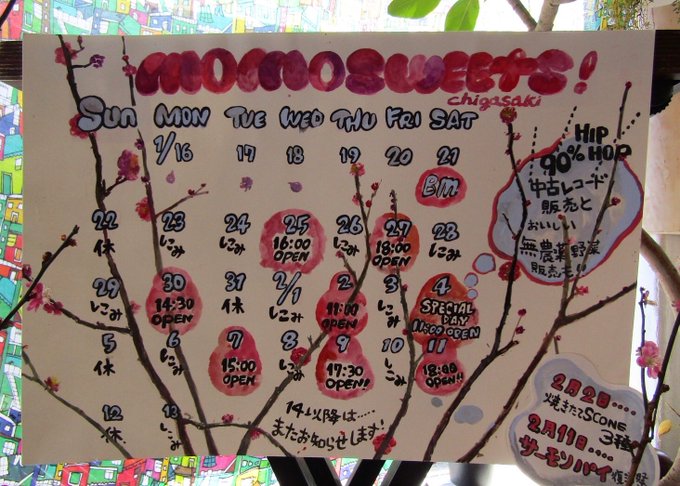 MOMOSWEETS!
chigasaki
SUN MON TUE WED THU FRI SAT
1/16 17 18 19 20 21
BM
22 23 24 25 26 27 28
休 しこみ しこみ 16:00 OPEN しこみ 18:00 OPEN しこみ
29 30 31 2/1 2 3 4
しこみ 14:30 OPEN 休 しこみ 11:00 OPEN しこみ SPECIAL DAY 11:00 OPEN
5 6 7 8 9 10 11
休 しこみ 15:00 OPEN しこみ 17:30 OPEN! しこみ 18:00 OPEN!!
12 13
休 しこみ
14以降は……
またお知らせします!
90% HIP HOP
中古レコード
販売と
おいしい
無農薬野菜
販売も!!
2月2日……
焼きたてSCONE
3種
2月11日……
サーモンパイ